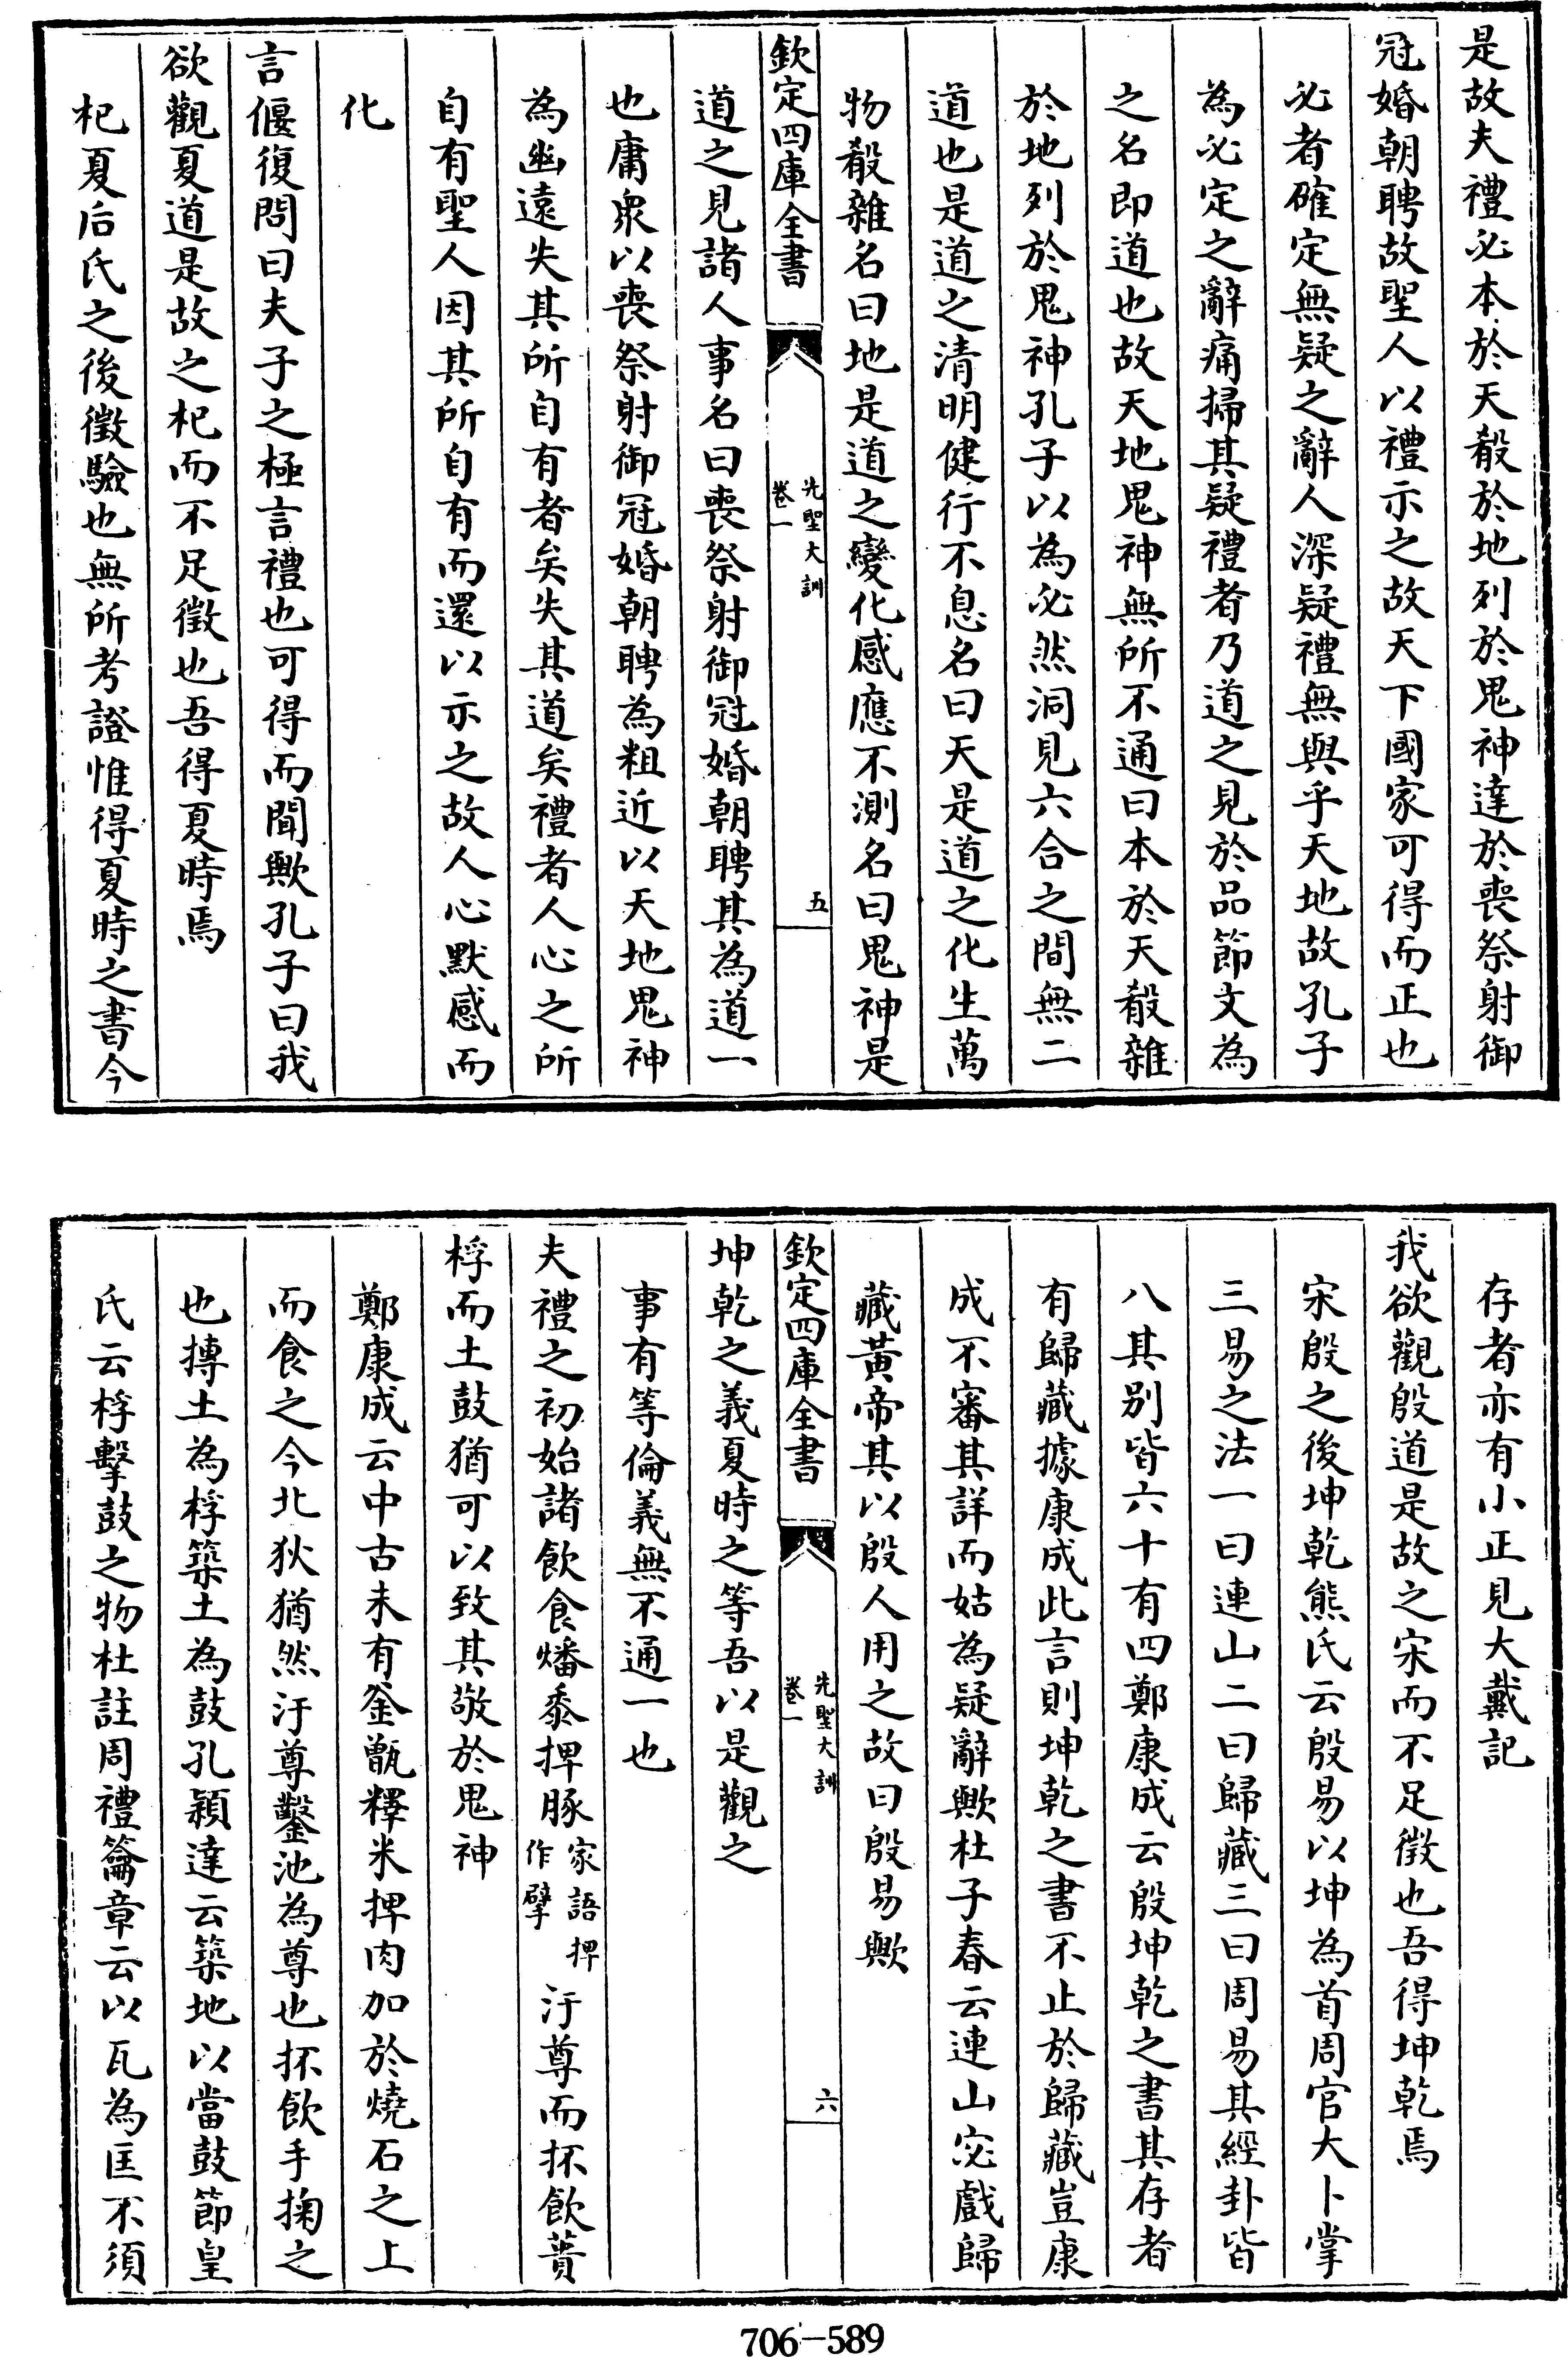 是故夫禮必本於天殽於地列於鬼神達於喪祭射御
冠婚朝聘故聖人以禮示之故天下國家可得而正也
必者確定無疑之辭人深疑禮無與乎天地故孔子
為必定之辭痛掃其疑禮者乃道之見於品節文為
之名即道也故天地鬼神無所不通曰本於天殽雜
於地列於鬼神孔子以為必然洞見六合之間無二
道也是道之清明健行不息名曰天是道之化生萬
物殽雜名曰地是道之變化感應不測名曰鬼神是
欽定四庫全書
先聖大訓
卷一
五
道之見諸人事名曰喪祭射御冠婚朝聘其為道一
也庸衆以喪祭射御冠婚朝聘為粗近以天地鬼神
為幽遠失其所自有者矣失其道矣禮者人心之所
自有聖人因其所自有而還以示之故人心默感而
化
言偃復問曰夫子之極言禮也可得而聞歟孔子曰我
欲觀夏道是故之杞而不足徵也吾得夏時焉
杞夏后氏之後徵驗也無所考證惟得夏時之書今
存者亦有小正見大戴記
我欲觀殷道是故之宋而不足徵也吾得坤乾焉
宋殷之後坤乾熊氏云殷易以坤為首周官大卜掌
三易之法一曰連山二曰歸藏三曰周易其經卦皆
八其别皆六十有四鄭康成云殷坤乾之書其存者
有歸藏據康成此言則坤乾之書不止於歸藏豈康
成不審其詳而姑為疑辭歟杜子春云連山宓戲歸
藏黃帝其以殷人用之故曰殷易歟
欽定四庫全書
先聖大訓
卷一
六
坤乾之義夏時之等吾以是觀之
事有等倫義無不通一也
夫禮之初始諸飲食燔黍捭豚家語捭作擘汙尊而抔飲蕢
桴而土鼓猶可以致其敬於鬼神
鄭康成云中古未有釜甑釋米捭肉加於燒石之上
而食之今北狄猶然汙尊鑿池為尊也抔飲手掬之
也摶土為桴築土為鼓孔穎達云築地以當鼓節皇
氏云桴擊鼓之物杜註周禮籥章云以瓦為匡不須
706-589